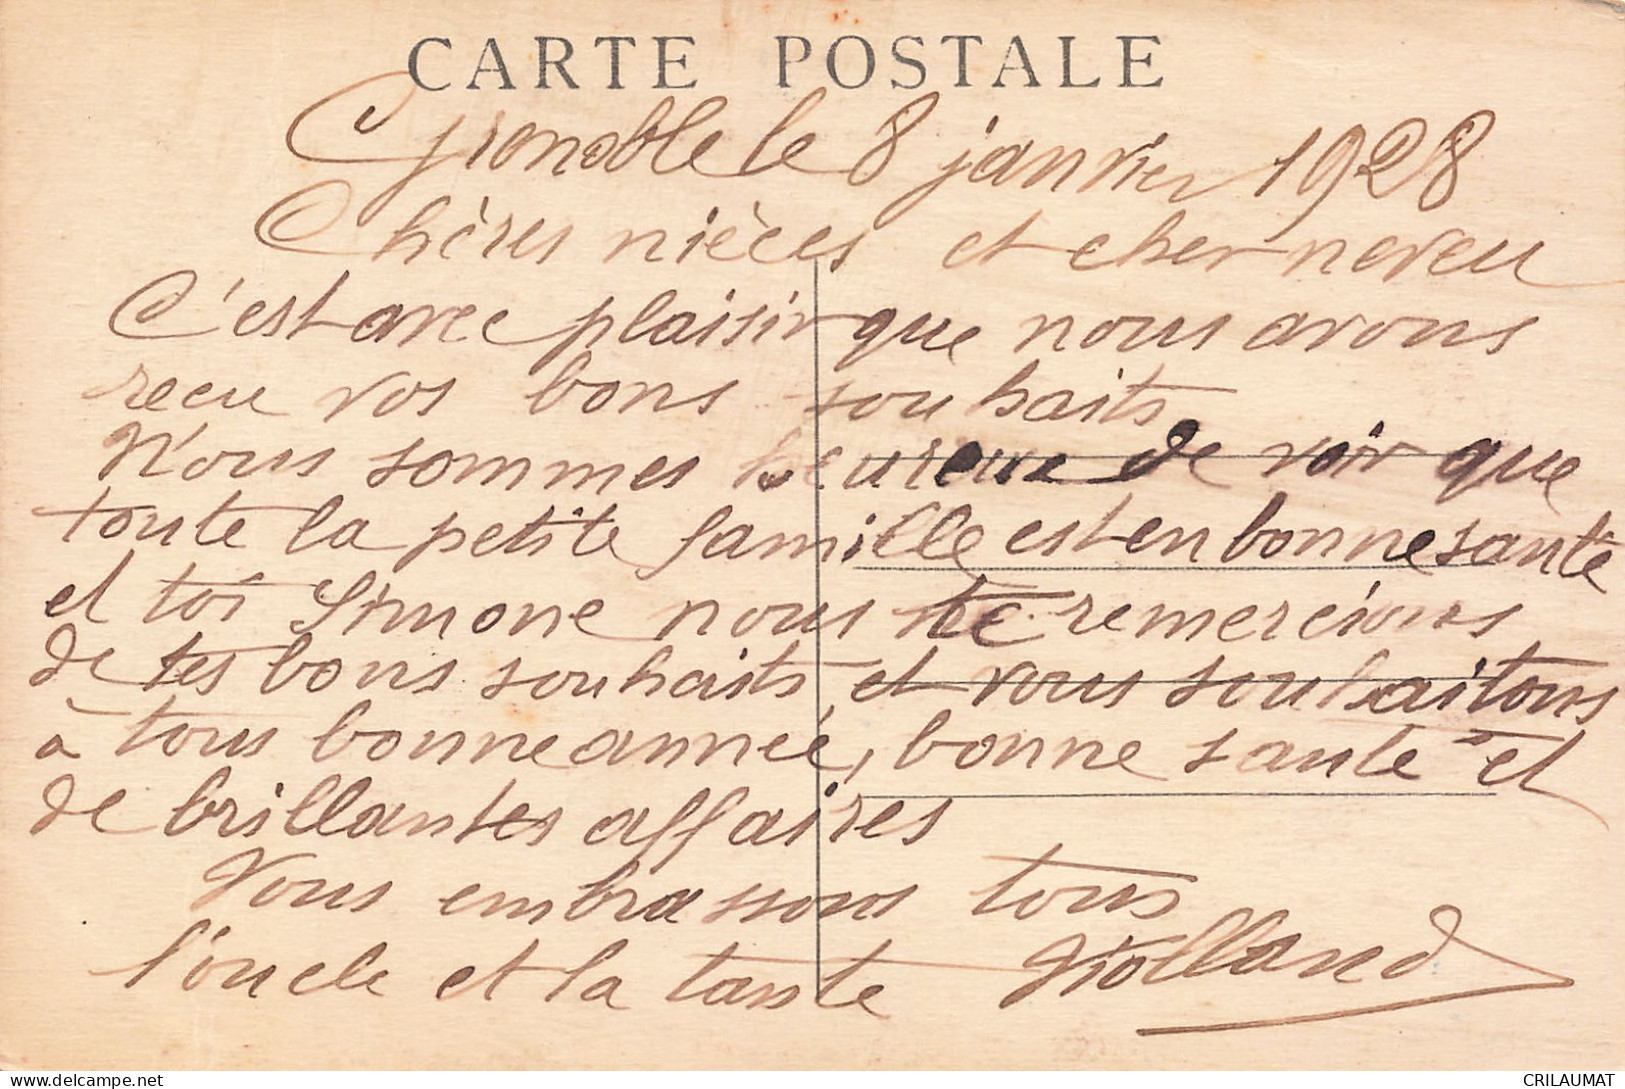 CARTE POSTALE
Grenoble le 8 janvier 1928
Chères nièces et cher neveu
C'est avec plaisir que nous avons
recu vos bons souhaits
Nous sommes heureux de voir que
toute la petite famille est en bonne santé
et toi Simone nous te remercions
de tes bons souhaits et vous souhaitons
à tous bonne année, bonne santé et
de brillantes affaires
Vous embrassons tous
l'oncle et la tante Violland
CRILAUMAT